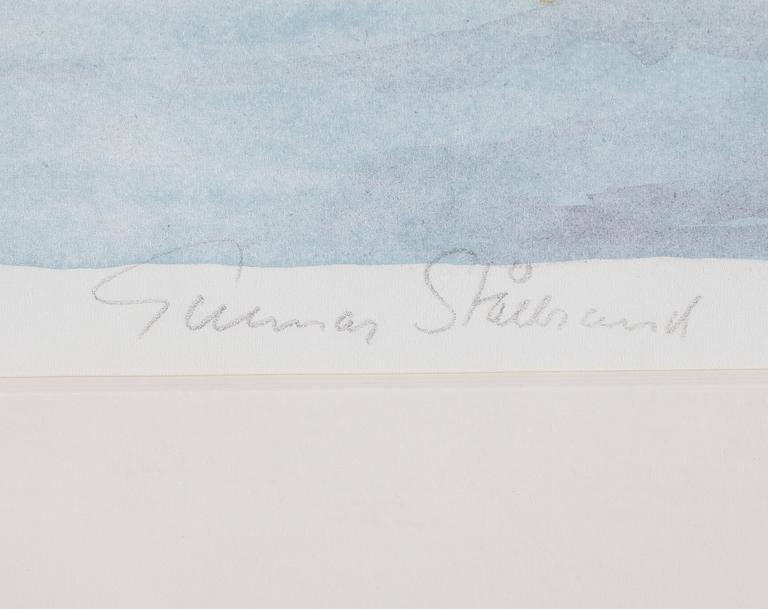 Gunnar Stålbrand